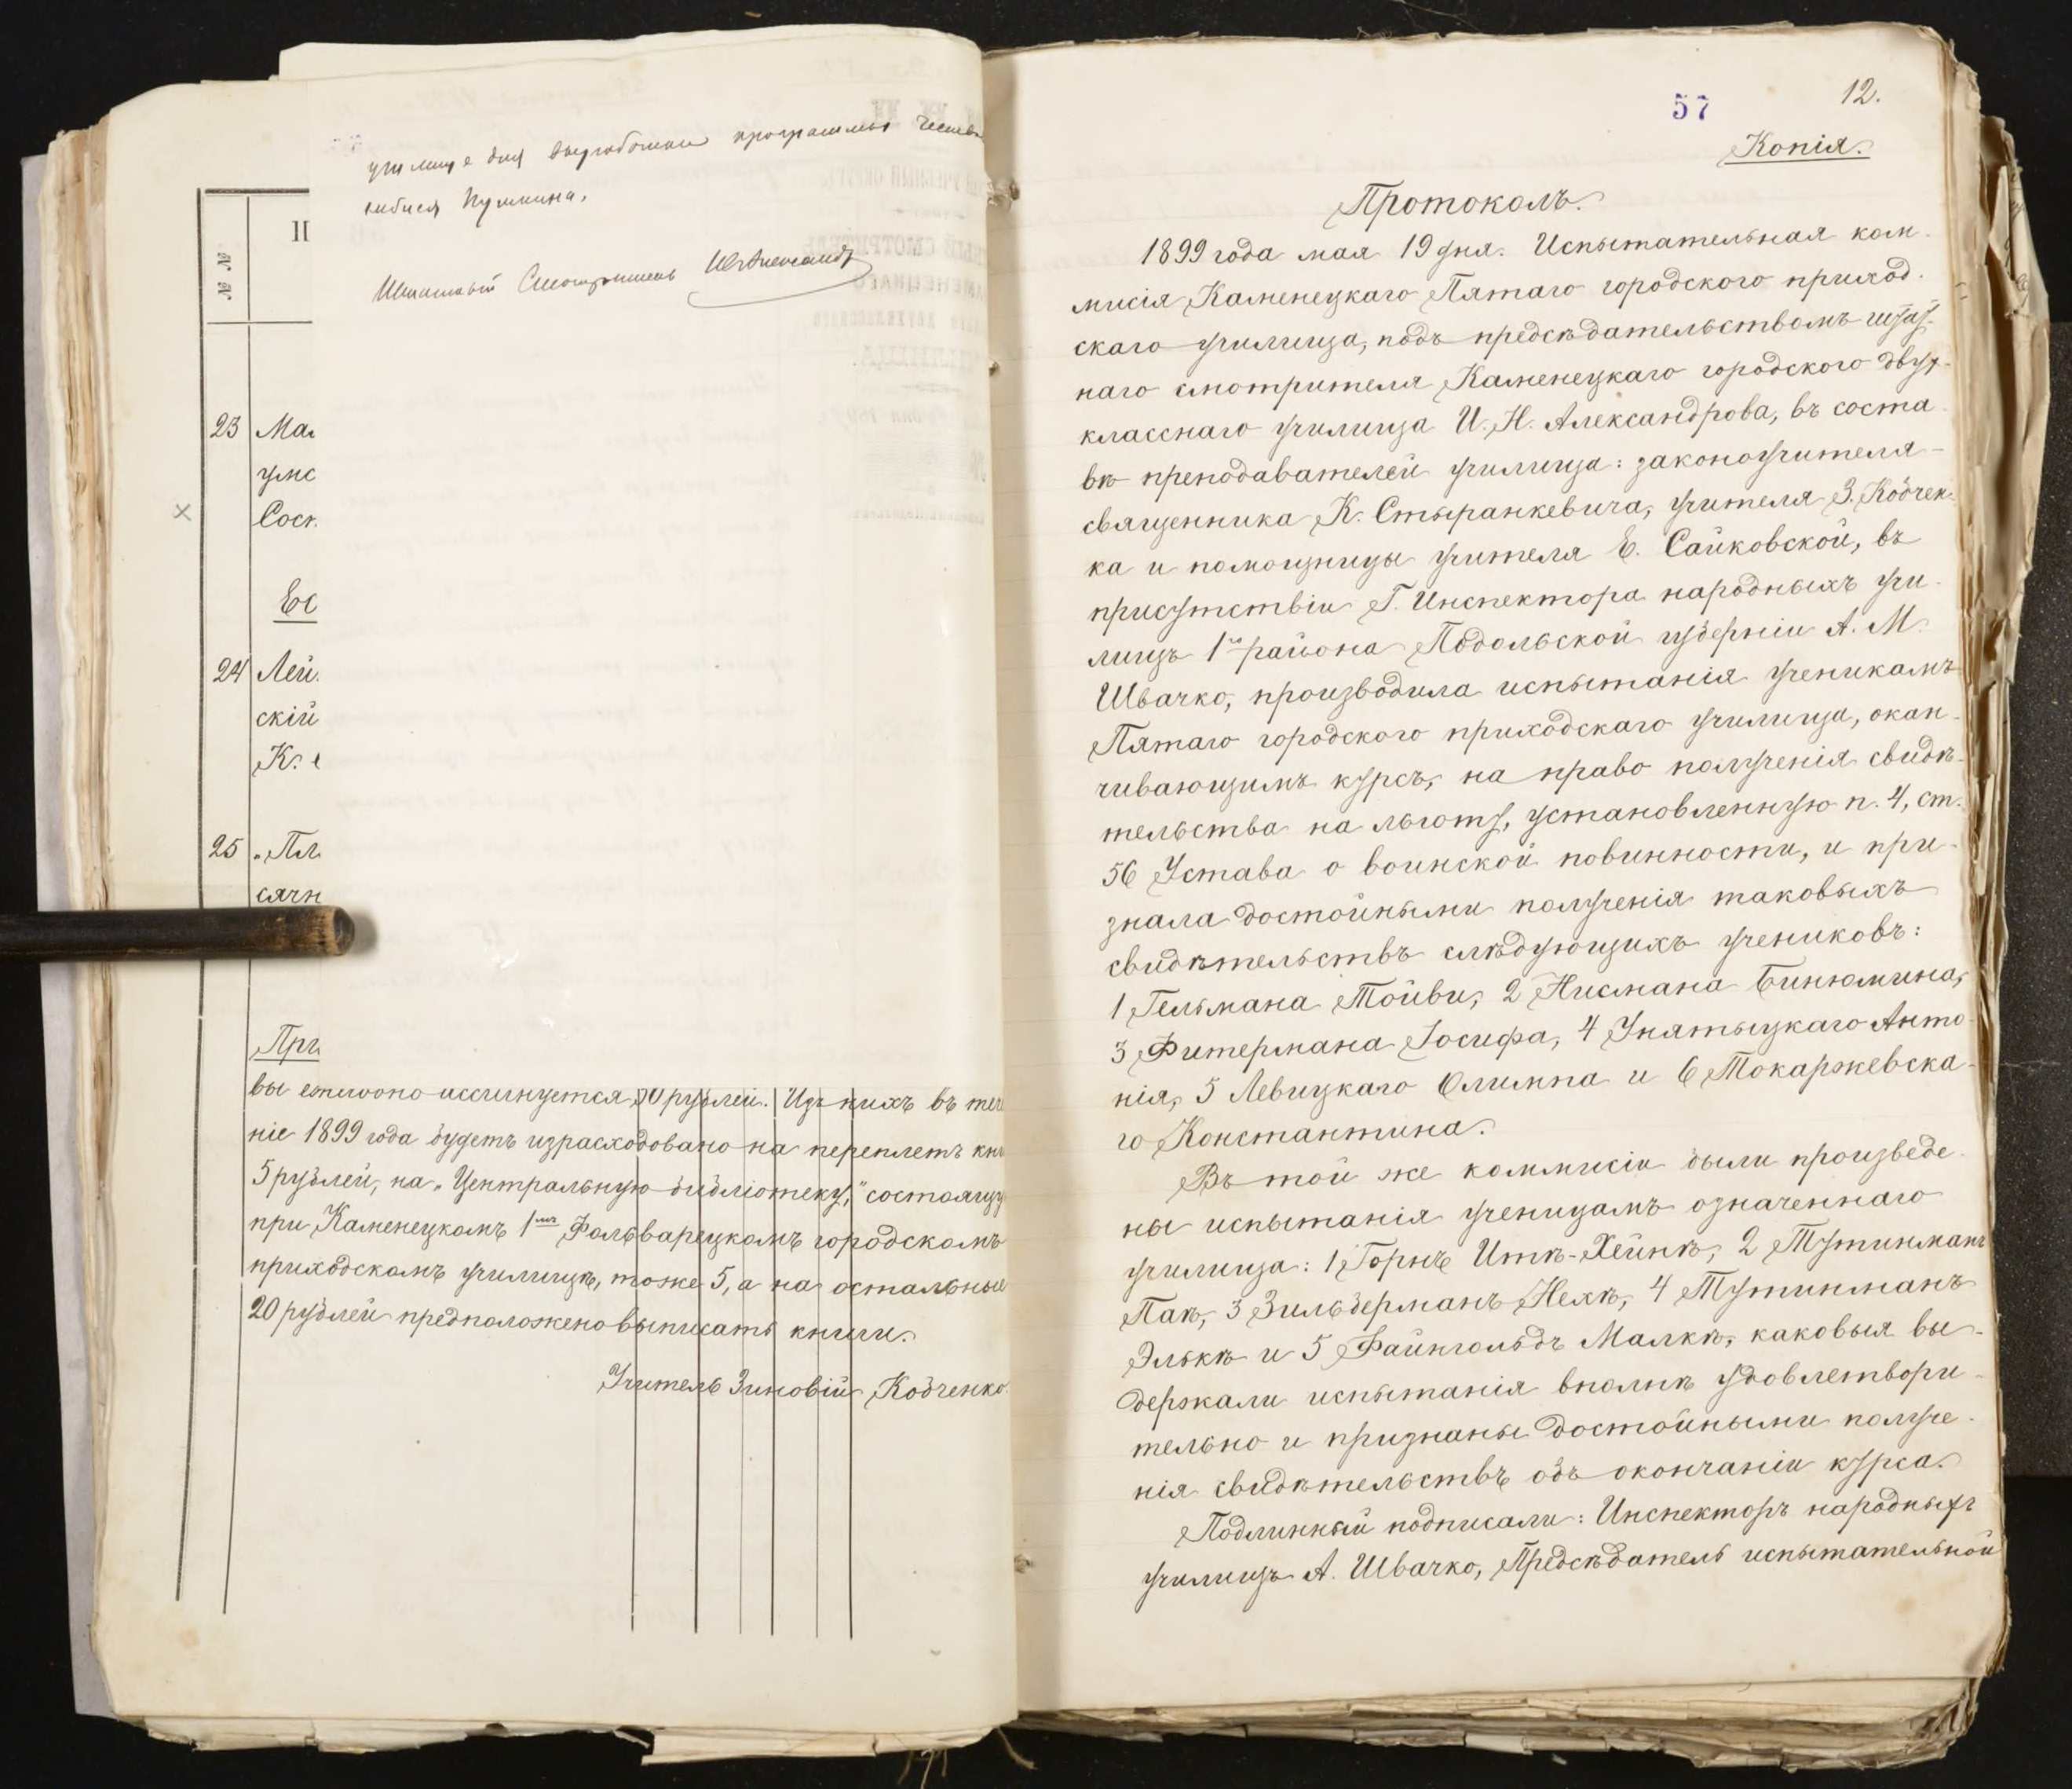 училище для выработки программы чество
Пушкина.
Штатный Смотритель И. Александр
№ №
II
23 Мал
умс
Сост.
24 Лей.
скій
К.
25 „Пл.
сячн
Прг
вы ежегодно ассигнуется 30 рублей. Изъ нихъ въ тече
ніе 1899 года будетъ израсходовано на переплетъ кни
5 рублей, на „Центральную библіотеку," состоящу
при Каменецкомъ 1мъ Фольварецкомъ городскомъ
приходскомъ училищѣ, тоже 5, а на остальные
20 рублей предположено выписать книги.
Учитель Зиновій Кобченко.
57
12.
Копія.
Протоколъ.
1899 года мая 19 дня. Испытательная ком-
мисія Каменецкаго Пятаго городского приход-
скаго училища, подъ предсѣдательствомъ штат-
наго смотрителя Каменецкаго городского двух-
класснаго училища И. Н. Александрова, въ соста-
вѣ преподавателей училища: законоучителя-
священника К. Стыранкевича, учителя З. Кобчен-
ка и помощницы учителя Е. Сайковской, въ
присутствіи Г. Инспектора народныхъ учи-
лищъ 1го района Подольской губерніи А. М.
Швачко, производила испытанія ученикамъ
Пятаго городского приходскаго училища, окан-
чивающимъ курсъ, на право полученія свидѣ-
тельства на льготу, установленную п. 4, ст.
56 Устава о воинской повинности, и при-
знала достойными полученія таковыхъ
свидѣтельствъ слѣдующихъ учениковъ:
1 Гельмана Тойви, 2 Нисмана Бинюмина,
3 Фитермана Іосифа, 4 Унятыцкаго Анто-
нія, 5 Левицкаго Олимпа и 6 Токаржевска-
го Константина.
Въ той же коммисіи были произведе-
ны испытанія ученицамъ означеннаго
училища: 1 Горнъ Иткѣ-Хейнѣ, 2 Тутинманъ
Паѣ, 3 Зильберманъ Нехѣ, 4 Тутинманъ
Элькѣ и 5 Файнгольдъ Малкѣ, каковыя вы-
держали испытанія вполнѣ удовлетвори-
тельно и признаны достойными получе-
нія свидѣтельствъ объ окончаніи курса.
Подлинный подписали: Инспекторъ народныхъ
училищъ А. Швачко, Предсѣдатель испытательной